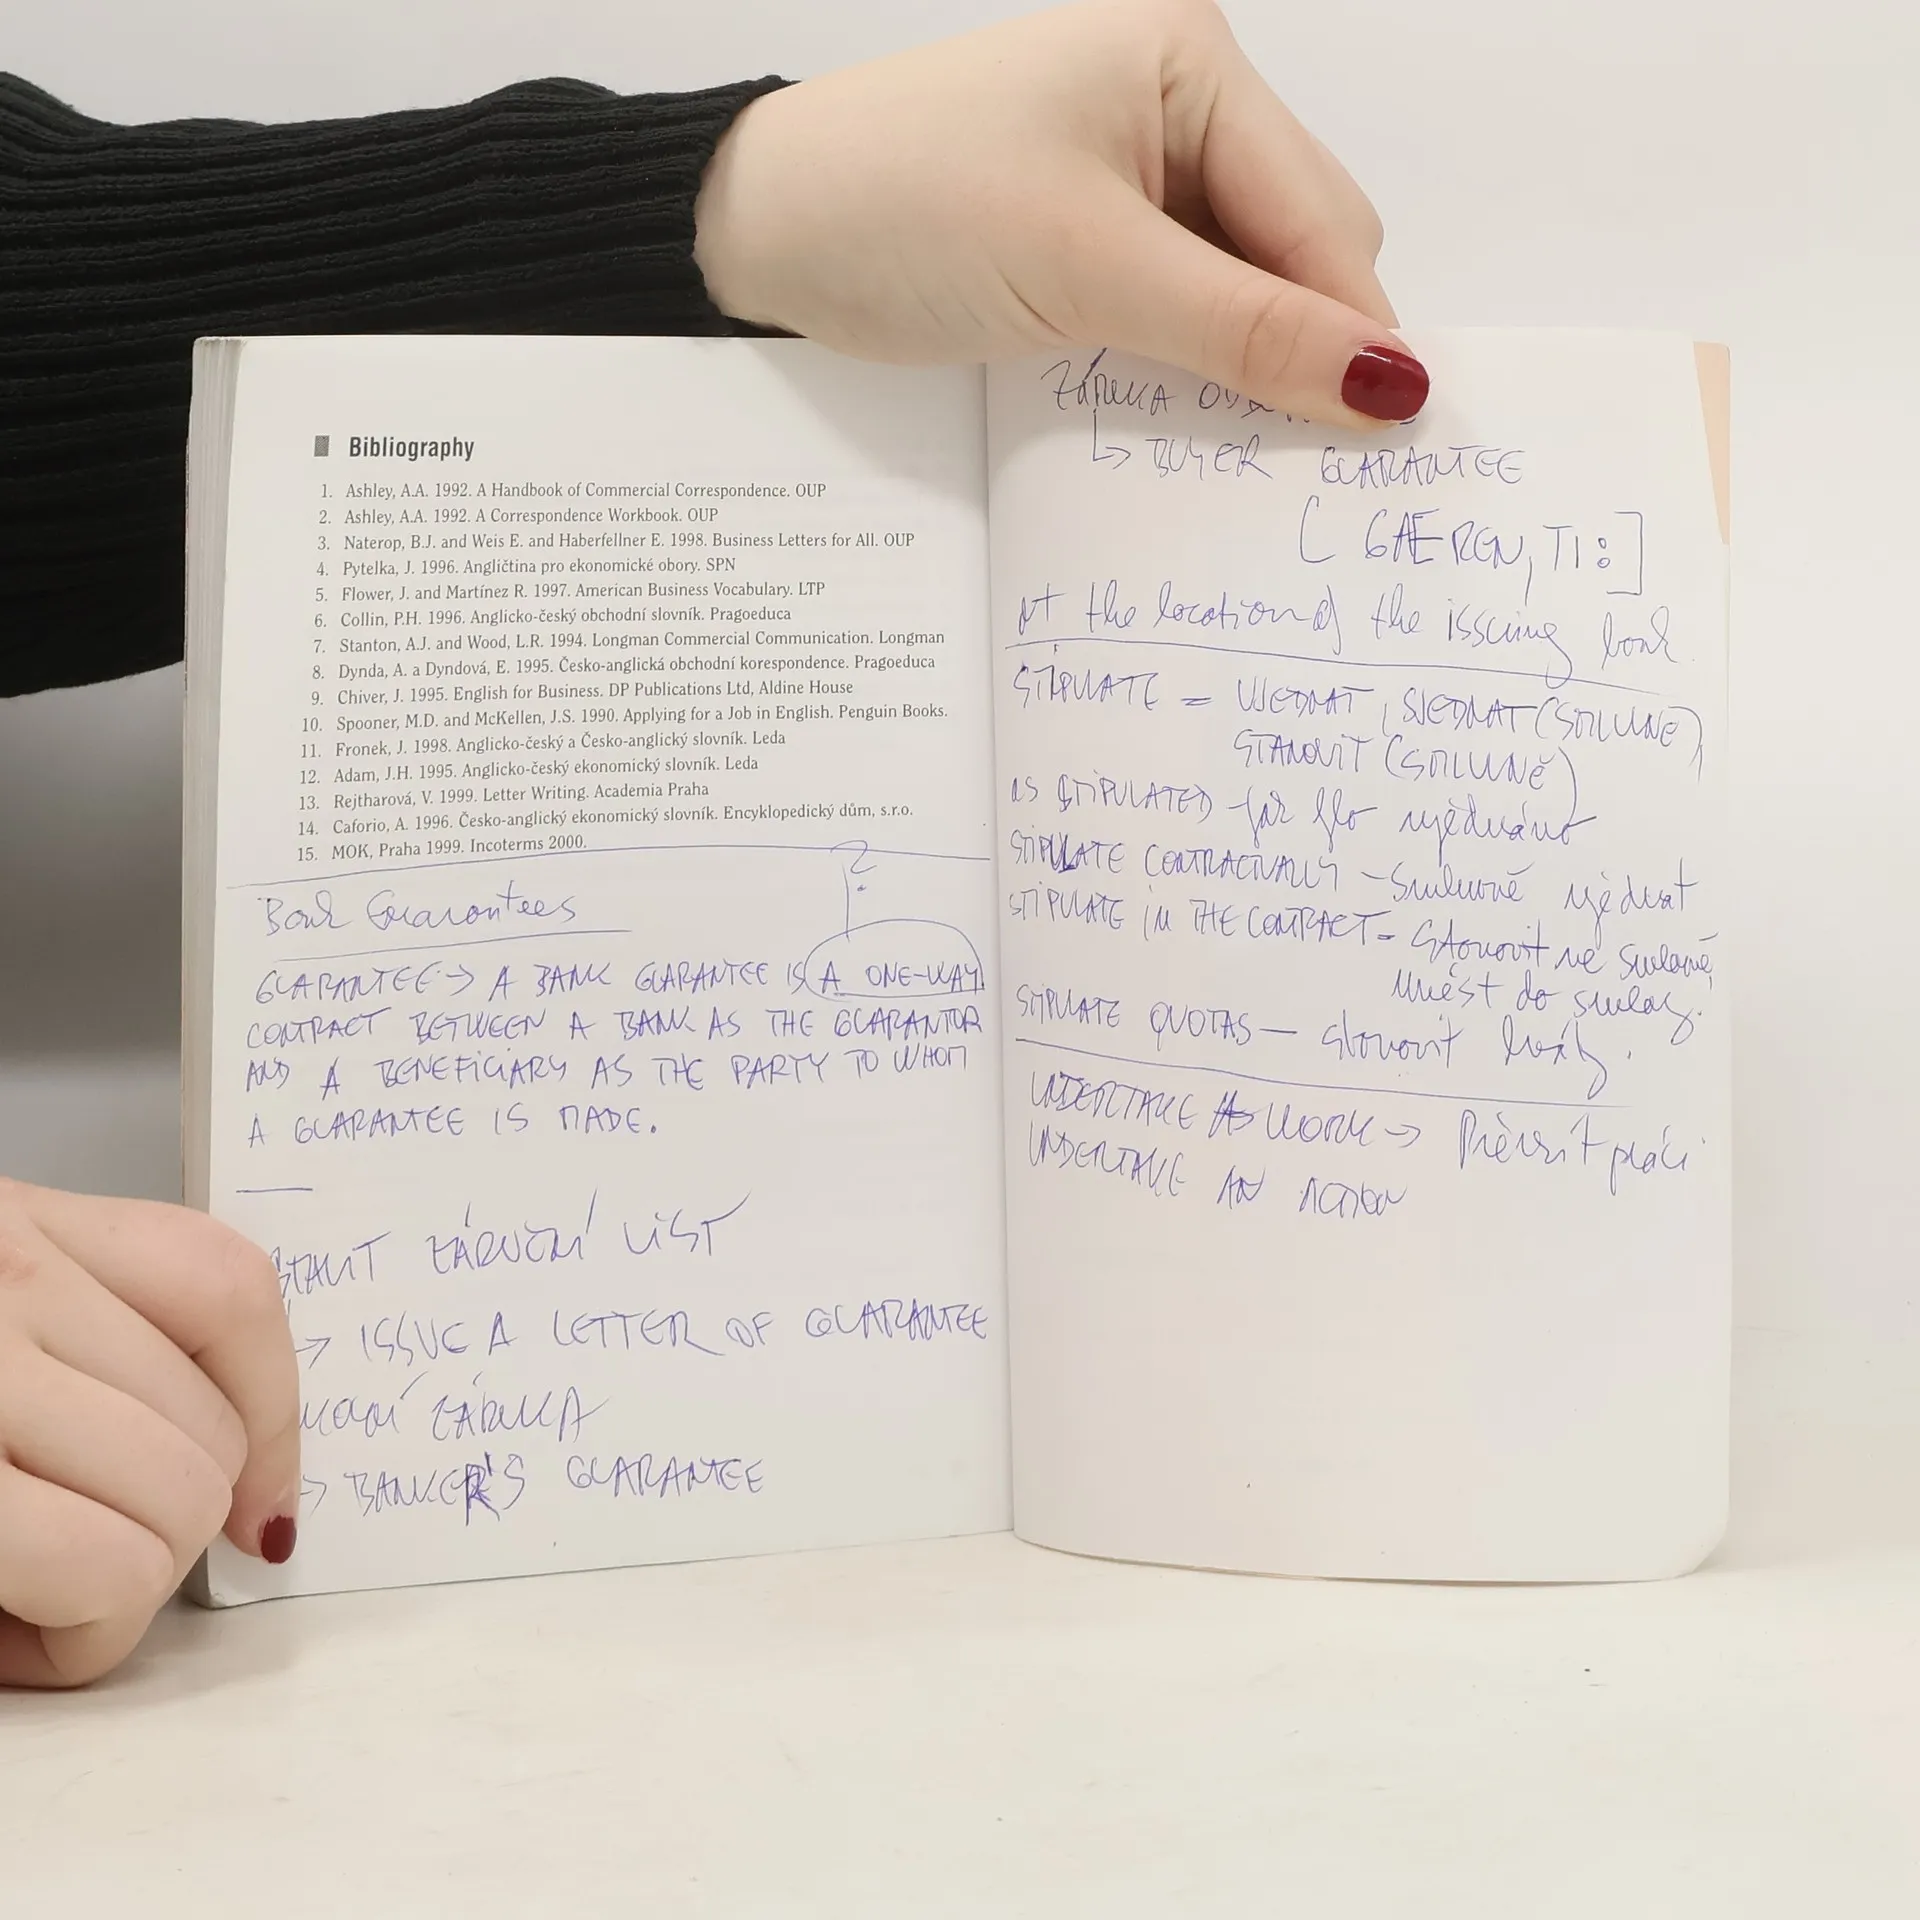 Bibliography
1. Ashley, A.A. 1992. A Handbook of Commercial Correspondence. OUP
2. Ashley, A.A. 1992. A Correspondence Workbook. OUP
3. Naterop, B.J. and Weis E. and Haberfellner E. 1998. Business Letters for All. OUP
4. Pytelka, J. 1996. Angličtina pro ekonomické obory. SPN
5. Flower, J. and Martínez R. 1997. American Business Vocabulary. LTP
6. Collin, P.H. 1996. Anglicko-český obchodní slovník. Pragoeduca
7. Stanton, A.J. and Wood, L.R. 1994. Longman Commercial Communication. Longman
8. Dynda, A. a Dyndová, E. 1995. Česko-anglická obchodní korespondence. Pragoeduca
9. Chiver, J. 1995. English for Business. DP Publications Ltd, Aldine House
10. Spooner, M.D. and McKellen, J.S. 1990. Applying for a Job in English. Penguin Books.
11. Fronek, J. 1998. Anglicko-český a Česko-anglický slovník. Leda
12. Adam, J.H. 1995. Anglicko-český ekonomický slovník. Leda
13. Rejtharová, V. 1999. Letter Writing. Academia Praha
14. Caforio, A. 1996. Česko-anglický ekonomický slovník. Encyklopedický dům, s.r.o.
15. MOK, Praha 1999. Incoterms 2000.
Bank Guarantees
GUARANTEE → A BANK GUARANTEE IS A ONE-WAY
CONTRACT BETWEEN A BANK AS THE GUARANTOR
AND A BENEFICIARY AS THE PARTY TO WHOM
A GUARANTEE IS MADE.
ZÁRUČNÍ LIST
→ ISSUE A LETTER OF GUARANTEE
ZÁRUKA
→ BANKER'S GUARANTEE
ZÁRUKA
↳ BUYER GUARANTEE
[GAEREN,TI:]
at the location of the issuing bank
STIPULATE = UJEDNAT, SJEDNAT (SMLUVNĚ)
STANOVIT (SMLUVNĚ)
AS STIPULATED - jak bylo ujednáno
STIPULATE CONTRACTUALLY - Smluvně ujednat
STIPULATE IN THE CONTRACT - Stanovit ve smlouvě,
vnést do smlouvy.
STIPULATE QUOTAS - stanovit kvóty.
UNDERTAKE WORK → Převzít práci
UNDERTAKE AN ACTION